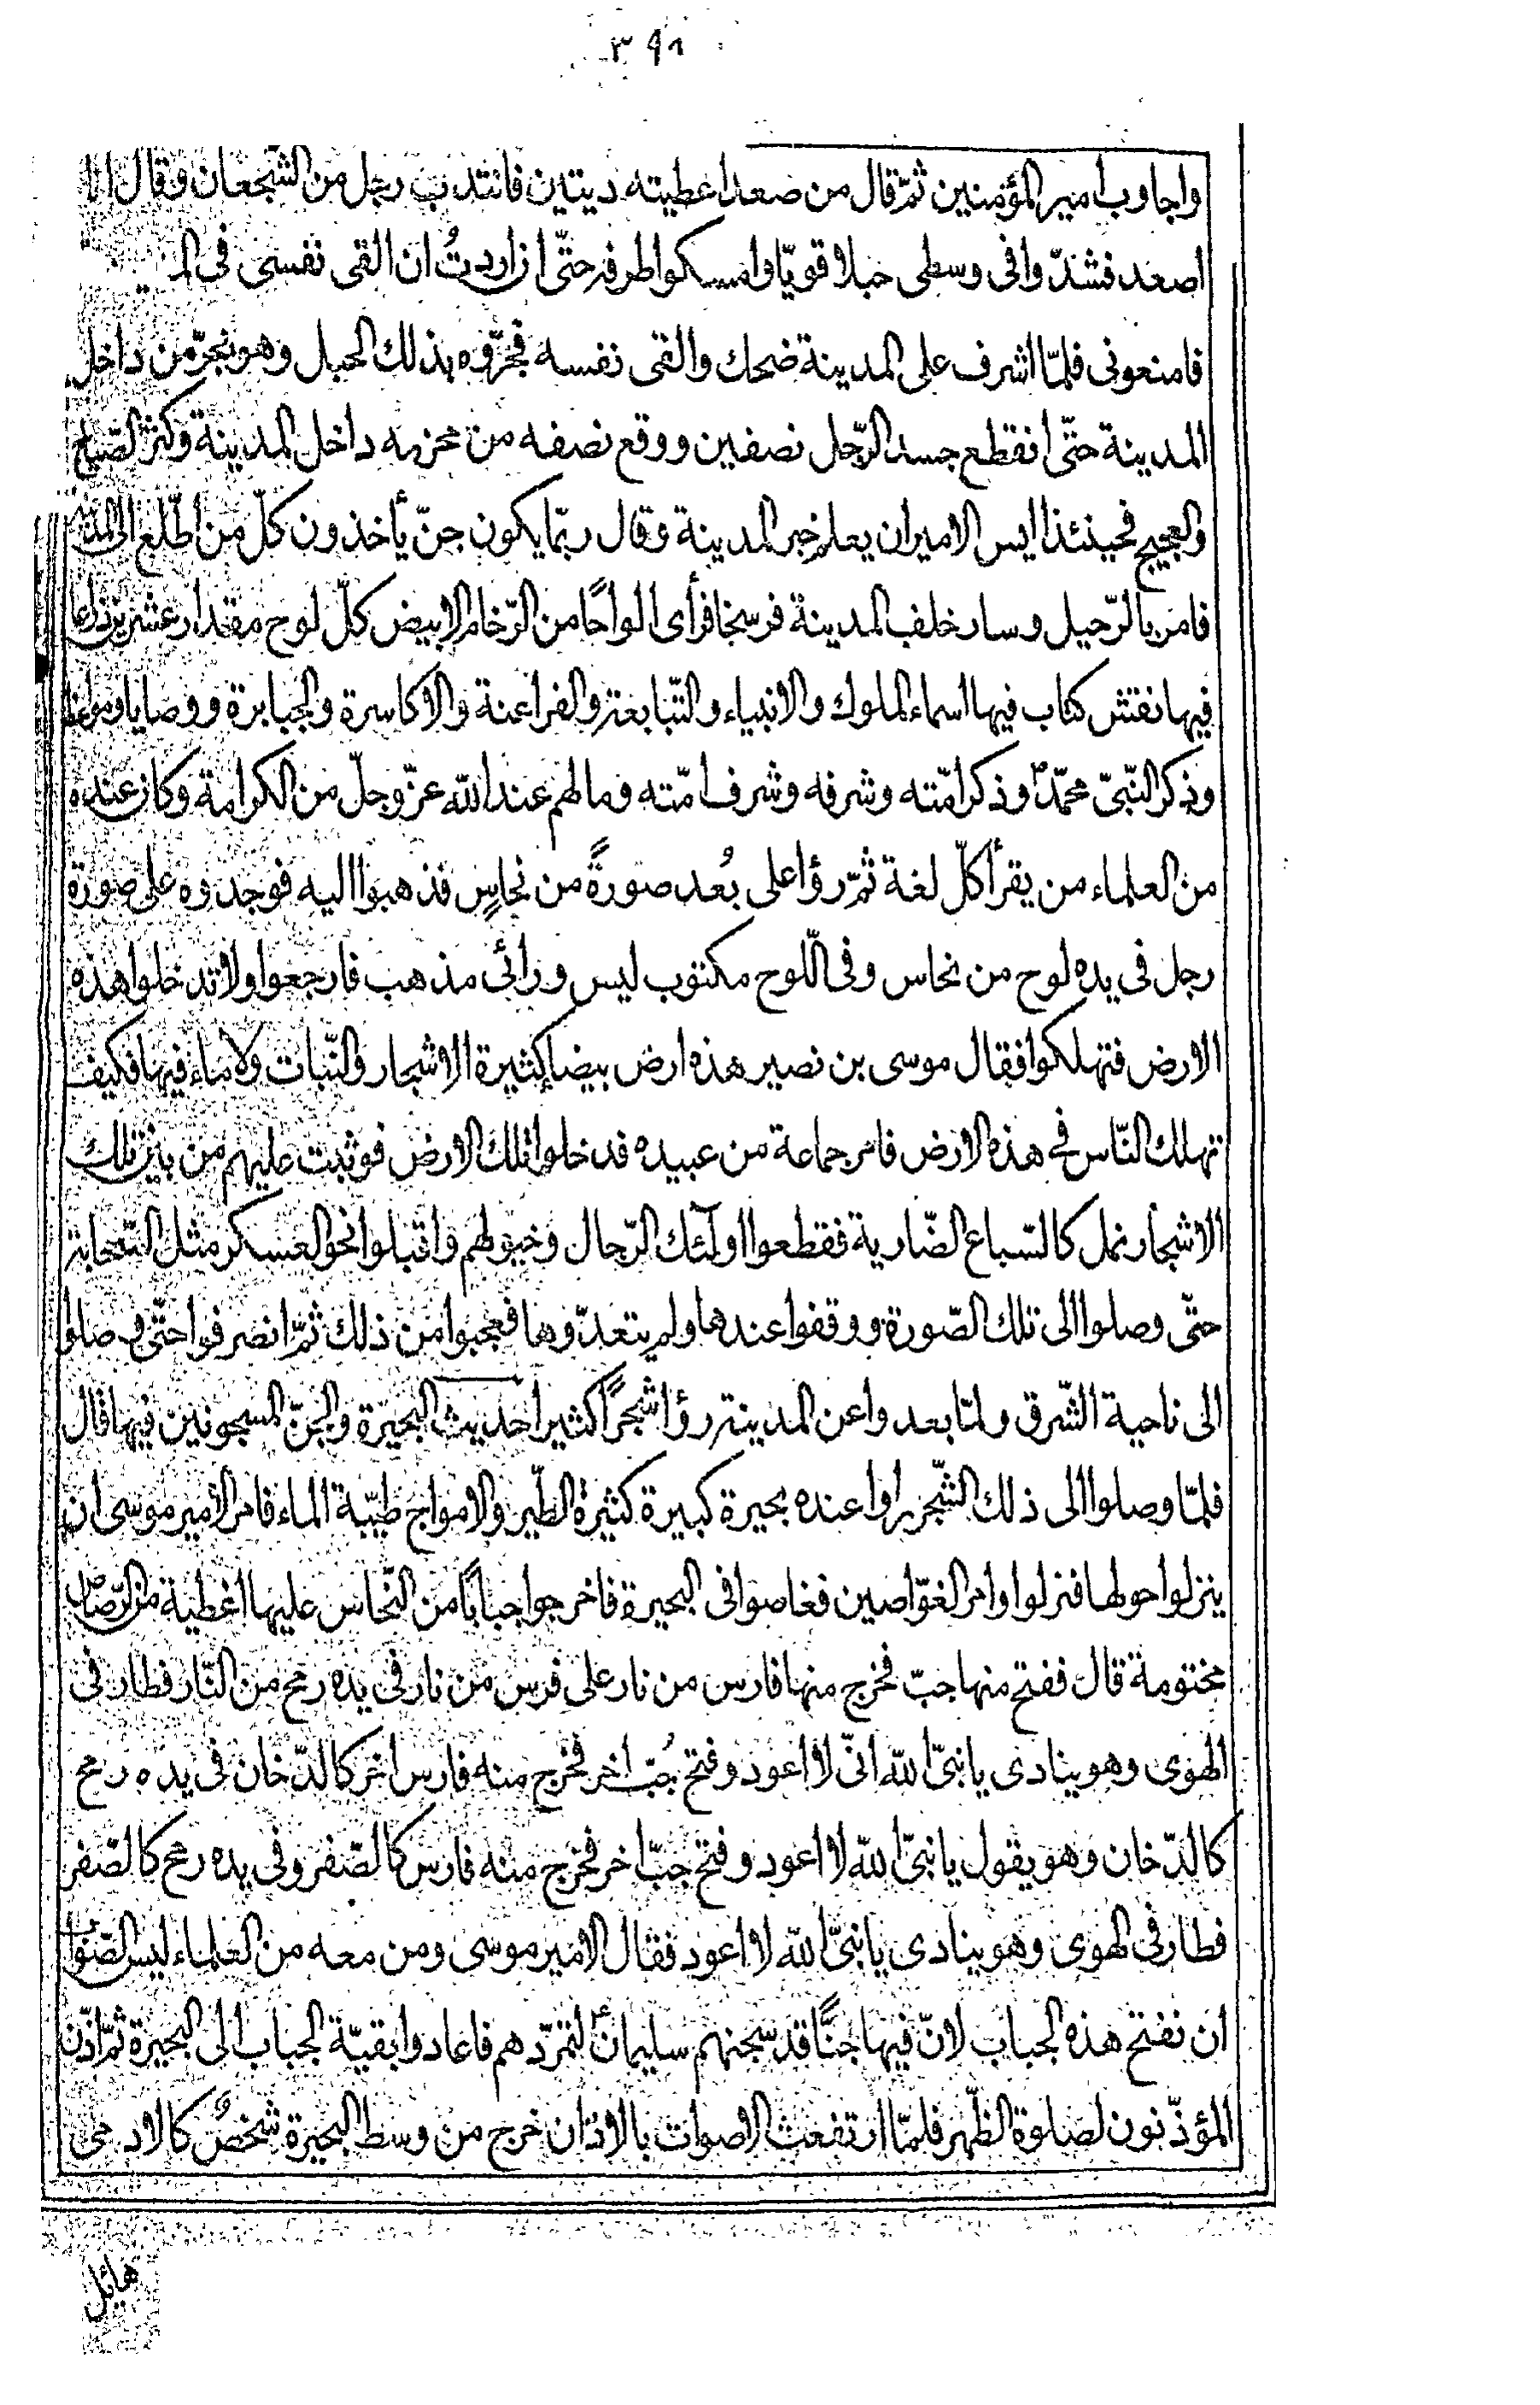 ٣٩١
واجاوب امير المؤمنين ثمّ قال من صعد اعطيته ديتين فانتدب رجل من الشّجعان وقال انا
اصعد فشدّوا فى وسطى حبلا قويّا وامسكوا طرفه حتّى اذا اردتُ ان القى نفسى فى
فامنعونى فلمّا اشرف على المدينة ضحك والقى نفسه فجرّوه بذلك الحبل وهو يجرّ من داخل
المدينة حتّى انقطع جسد الرّجل نصفين ووقع نصفه من محزمه داخل المدينة وكثر الصّياح
والعجيج فحينئذ ايس الامير ان يعلم خبر المدينة وقال ربّما يكون جنّ يأخذون كلّ من اطّلع الى المدينة
فامر بالرّحيل وسار خلف المدينة فرسخا فرأى الواحًا من الرّخام الابيض كلّ لوح مقدار عشرين ذراعا
فيها نقش كتاب فيها اسماء الملوك والانبياء والتّبابعة والفراعنة والاكاسرة والجبابرة ووصايا ومواعظ
وذكر النّبىّ محمّد ص وذكر امّته وشرفه وشرف امّته وما لهم عند الله عزّ وجلّ من الكرامة وكان عنده
من العلماء من يقرأ كلّ لغة ثمّ رؤا على بُعد صورةً من نحاسٍ فذهبوا اليه فوجدوه على صورة
رجل فى يده لوح من نحاس وفى اللّوح مكتوب ليس ورائى مذهب فارجعوا ولا تدخلوا هذه
الارض فتهلكوا فقال موسى بن نصير هذه ارض بيضا كثيرة الاشجار والنّبات ولاماء فيها فكيف
تهلك النّاس فى هذه الارض فامر جماعة من عبيده فدخلوا تلك الارض فوثبت عليهم من بين تلك
الاشجار نمل كالسّباع الضّارية فقطعوا اولئك الرّجال وخيولهم واقبلوا نحو العسكر مثل السّحابة
حتّى وصلوا الى تلك الصّورة ووقفوا عندها ولم يتعدّوها فعجبوا من ذلك ثمّ انصرفوا حتّى وصلوا
الى ناحية الشّرق ولمّا بعدوا عن المدينة رؤا شجرًا كثيرا حديث البحيرة والجنّ المسجونين فيها قال
فلمّا وصلوا الى ذلك الشّجر راوا عنده بحيرة كبيرة كثيرة الطّير والامواج طيّبة الماء فامر الأمير موسى ان
ينزلوا حولها فنزلوا وامر الغوّاصين فغاصوا فى البحيرة فاخرجوا جبابًا من النّحاس عليها اغطية من الرّصاص
مختومة قال ففتح منها جبّ فخرج منها فارس من نار على فرس من نار فى يده رمح من النّار فطار فى
الهوى وهو ينادى يا نبىّ الله انّى لا اعود وفتح جُبّ اخر فخرج منه فارس اخر كالدّخان فى يده رمح
كالدّخان وهو يقول يا نبىّ الله لا اعود وفتح جبّ اخر فخرج منه فارس كالصّفر وفى يده رمح كالصّفر
فطار فى الهوى وهو ينادى يا نبىّ الله لا اعود فقال الامير موسى ومن معه من العلماء ليس الصّواب
ان نفتح هذه الجباب لانّ فيها جنًّا قد سجنهم سليمان ع لتمرّدهم فاعادوا بقيّة الجباب الى البحيرة ثمّ اذّن
المؤذّنون لصلوة الظّهر فلمّا ارتفعت الاصوات بالاذان خرج من وسط البحيرة شخصٌ كالادمى
هائل